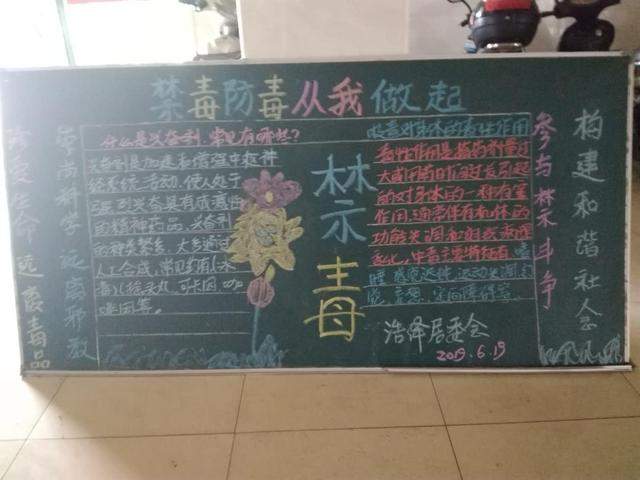 禁毒防毒从我做起
珍爱生命 远离毒品
崇尚科学 远离邪教
什么是兴奋剂，常见有哪些？
兴奋剂是加速和增强中枢神
经系统活动，使人处于
的精神药品，兴奋剂
的种类繁多，大多通过
人工合成，常见的有：冰
毒、摇头丸、可卡因、
啡因等。
禁毒
吸毒对身体的毒性作用
毒性作用是指用药剂量过
大或用药时间过长引起
的对身体的一种有害
作用，通常伴有机体的
功能失调和组织病理
变化，中毒主要特征有：嗜
睡、感觉迟钝、运动失调、幻
觉、妄想、定向障碍等。
浩泽居委会
2019.6.19
参与禁毒斗争
构建和谐社会